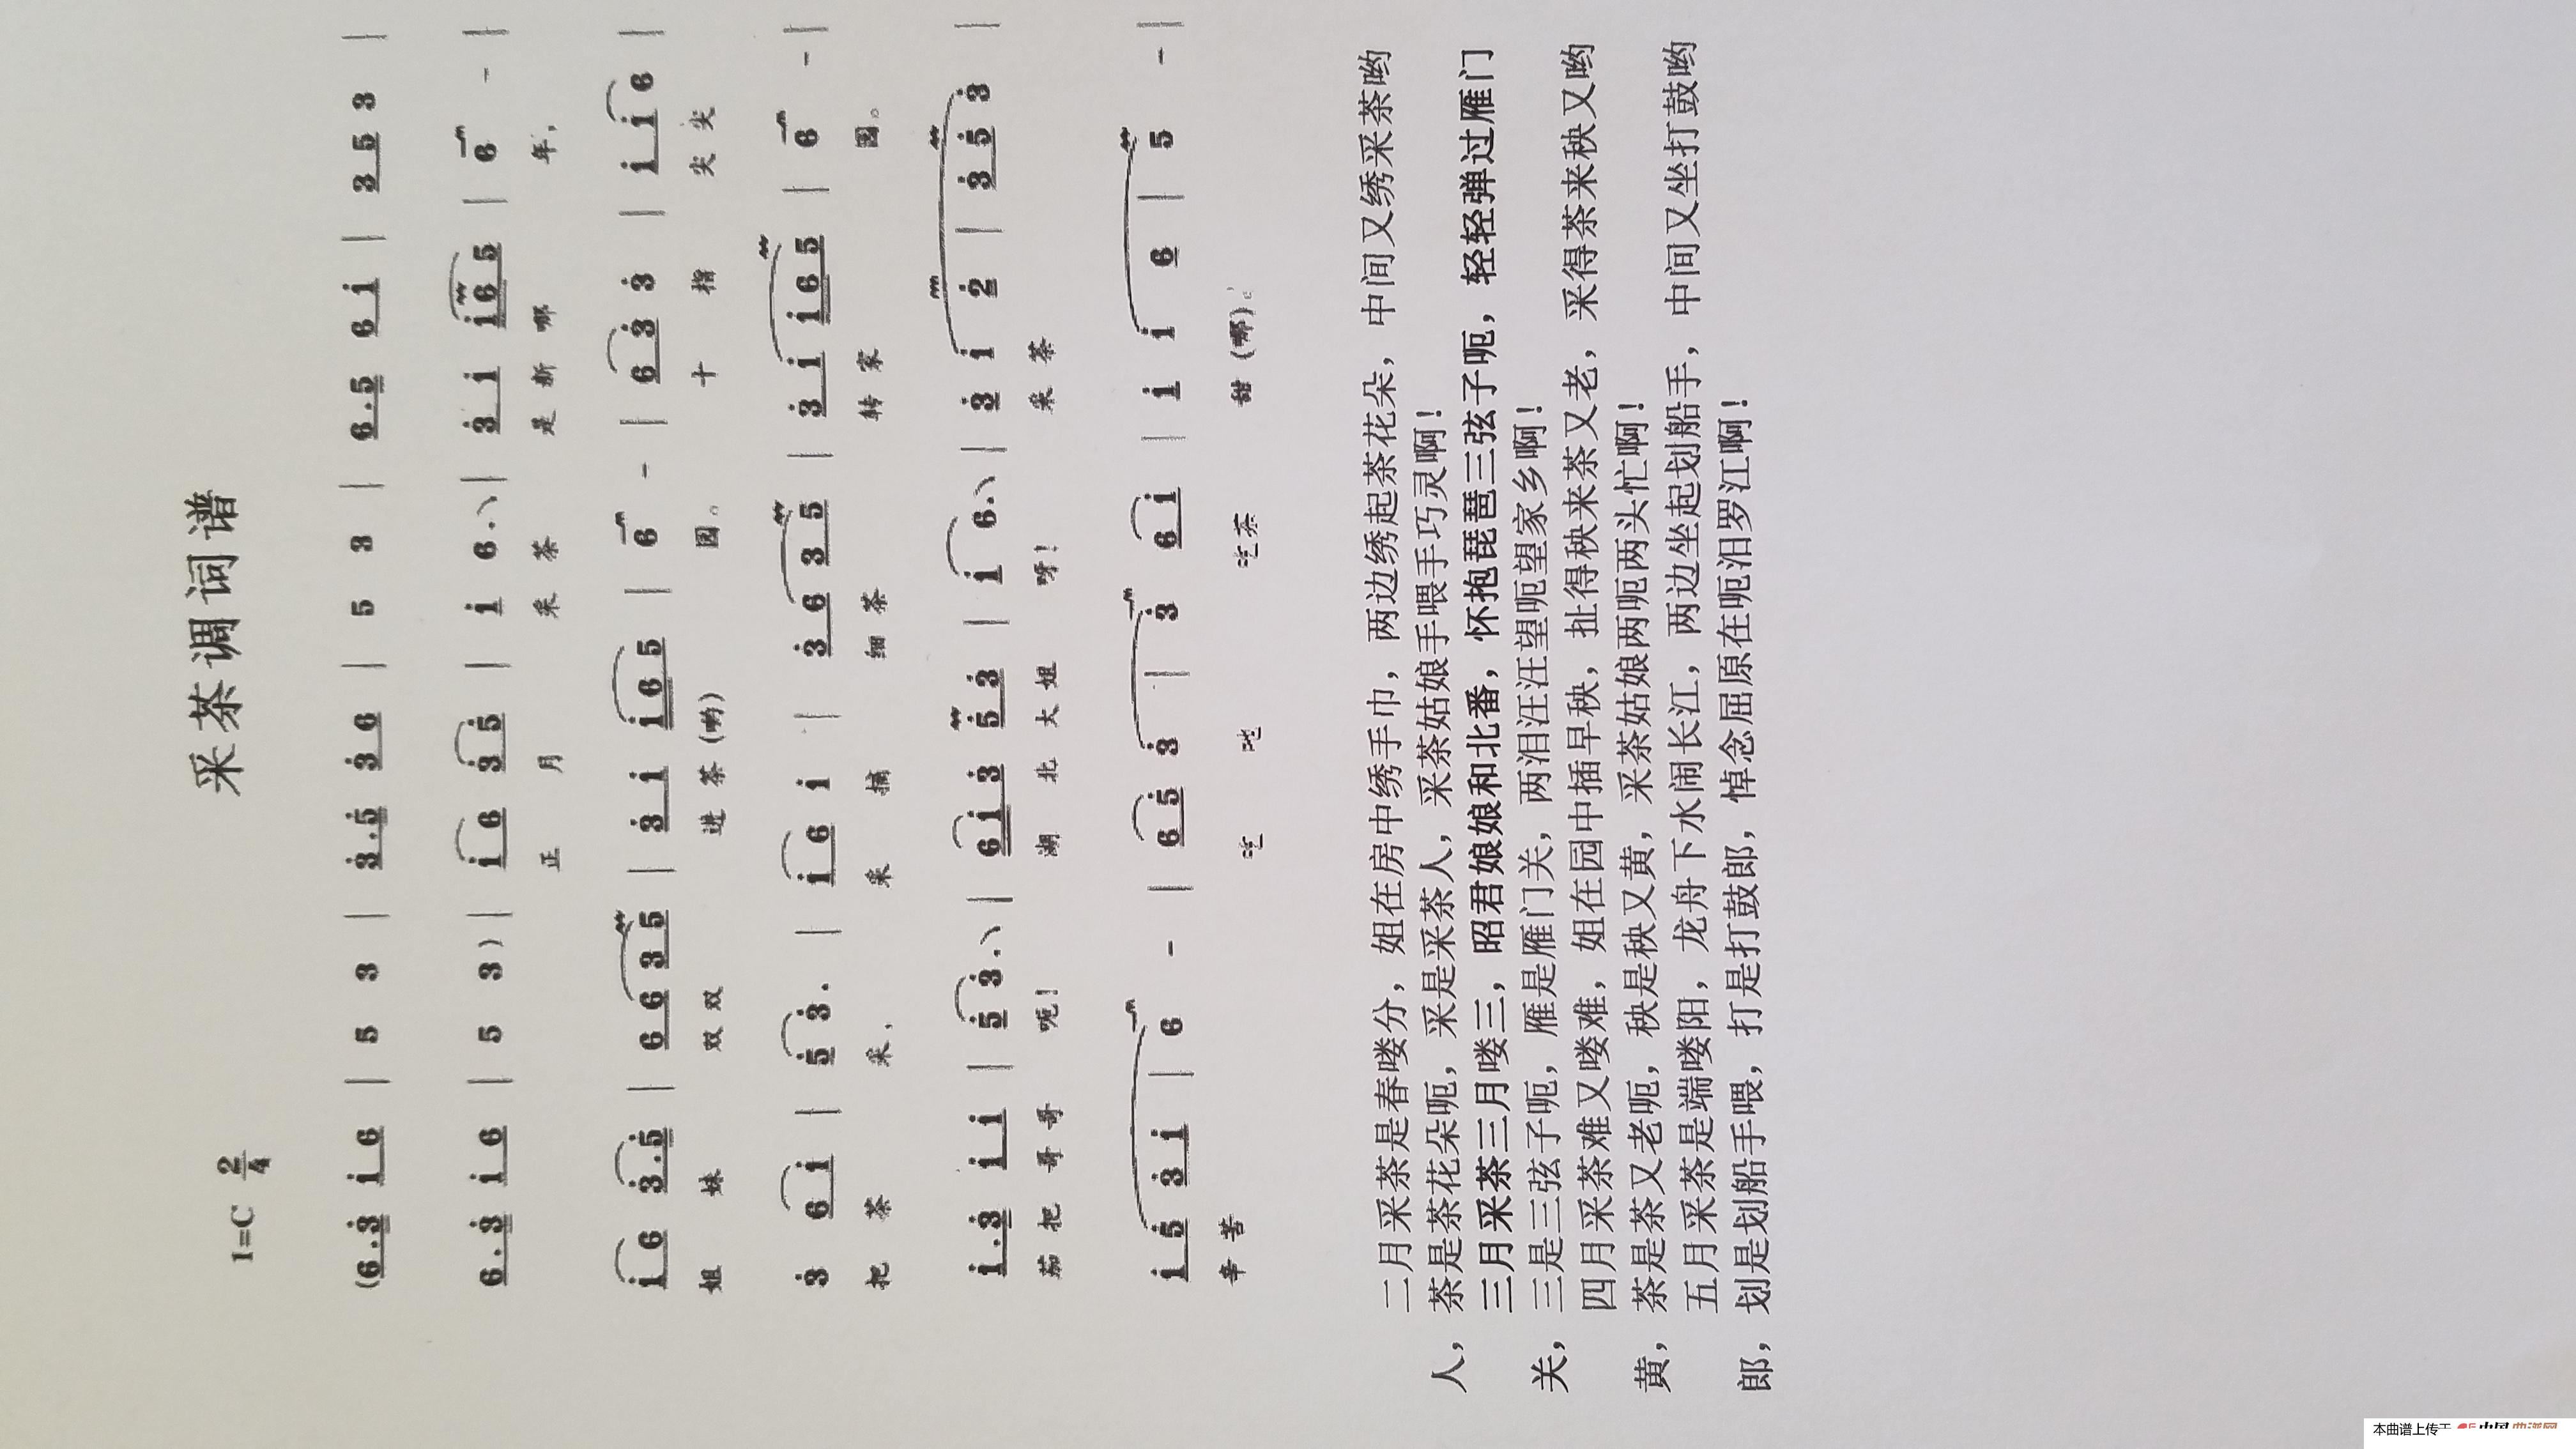 采茶调词谱
1=C 2/4
(6·3 i6 | 5 3 | 3·5 36 | 5 3 | 6·5 6i | 35 3 |
6·3 i6 | 5 3) | i6 35 | i 6· | 3i i65 | 6 - |
正 月 采茶 是新哪 年，
i6 3·5 | 66 35 | 3i i65 | 6 - | 63 3 | ii6 |
姐 妹 双双 进茶(哟) 园。 十 指 尖尖
3 6i | 5 3· | i6 i | 36 35 | 3i i65 | 6 - |
把 茶 采， 采 摘 细茶 转家 园。
i·3 ii | 5 3· | 6i3 53 | i 6· | 3 i 2 | 35 3 |
茹把哥哥 呃！ 湖 北大姐 呀！ 采茶
i5 3i | 6 - | 65 3 | 3 6i | i i 6 | 5 - |
辛苦 吃 吔 吃茶 甜(哪)。
二月采茶是春喽分，姐在房中绣手巾，两边绣起茶花朵，中间又绣采茶哟
人，茶是茶花朵呃，采是采茶人，采茶姑娘手喂手巧灵啊！
三月采茶三月喽三，昭君娘娘和北番，怀抱琵琶三弦子呃，轻轻弹过雁门
关，三是三弦子呃，雁是雁门关，两泪汪汪望呃望家乡啊！
四月采茶难又喽难，姐在园中插早秧，扯得秧来茶又老，采得茶来秧又哟
黄，茶是茶又老呃，秧是秧又黄，采茶姑娘两呃两头忙啊！
五月采茶是端喽阳，龙舟下水闹长江，两边坐起划船手，中间又坐打鼓哟
郎，划是划船手喂，打是打鼓郎，悼念屈原在呃汨罗江啊！
本曲谱上传于